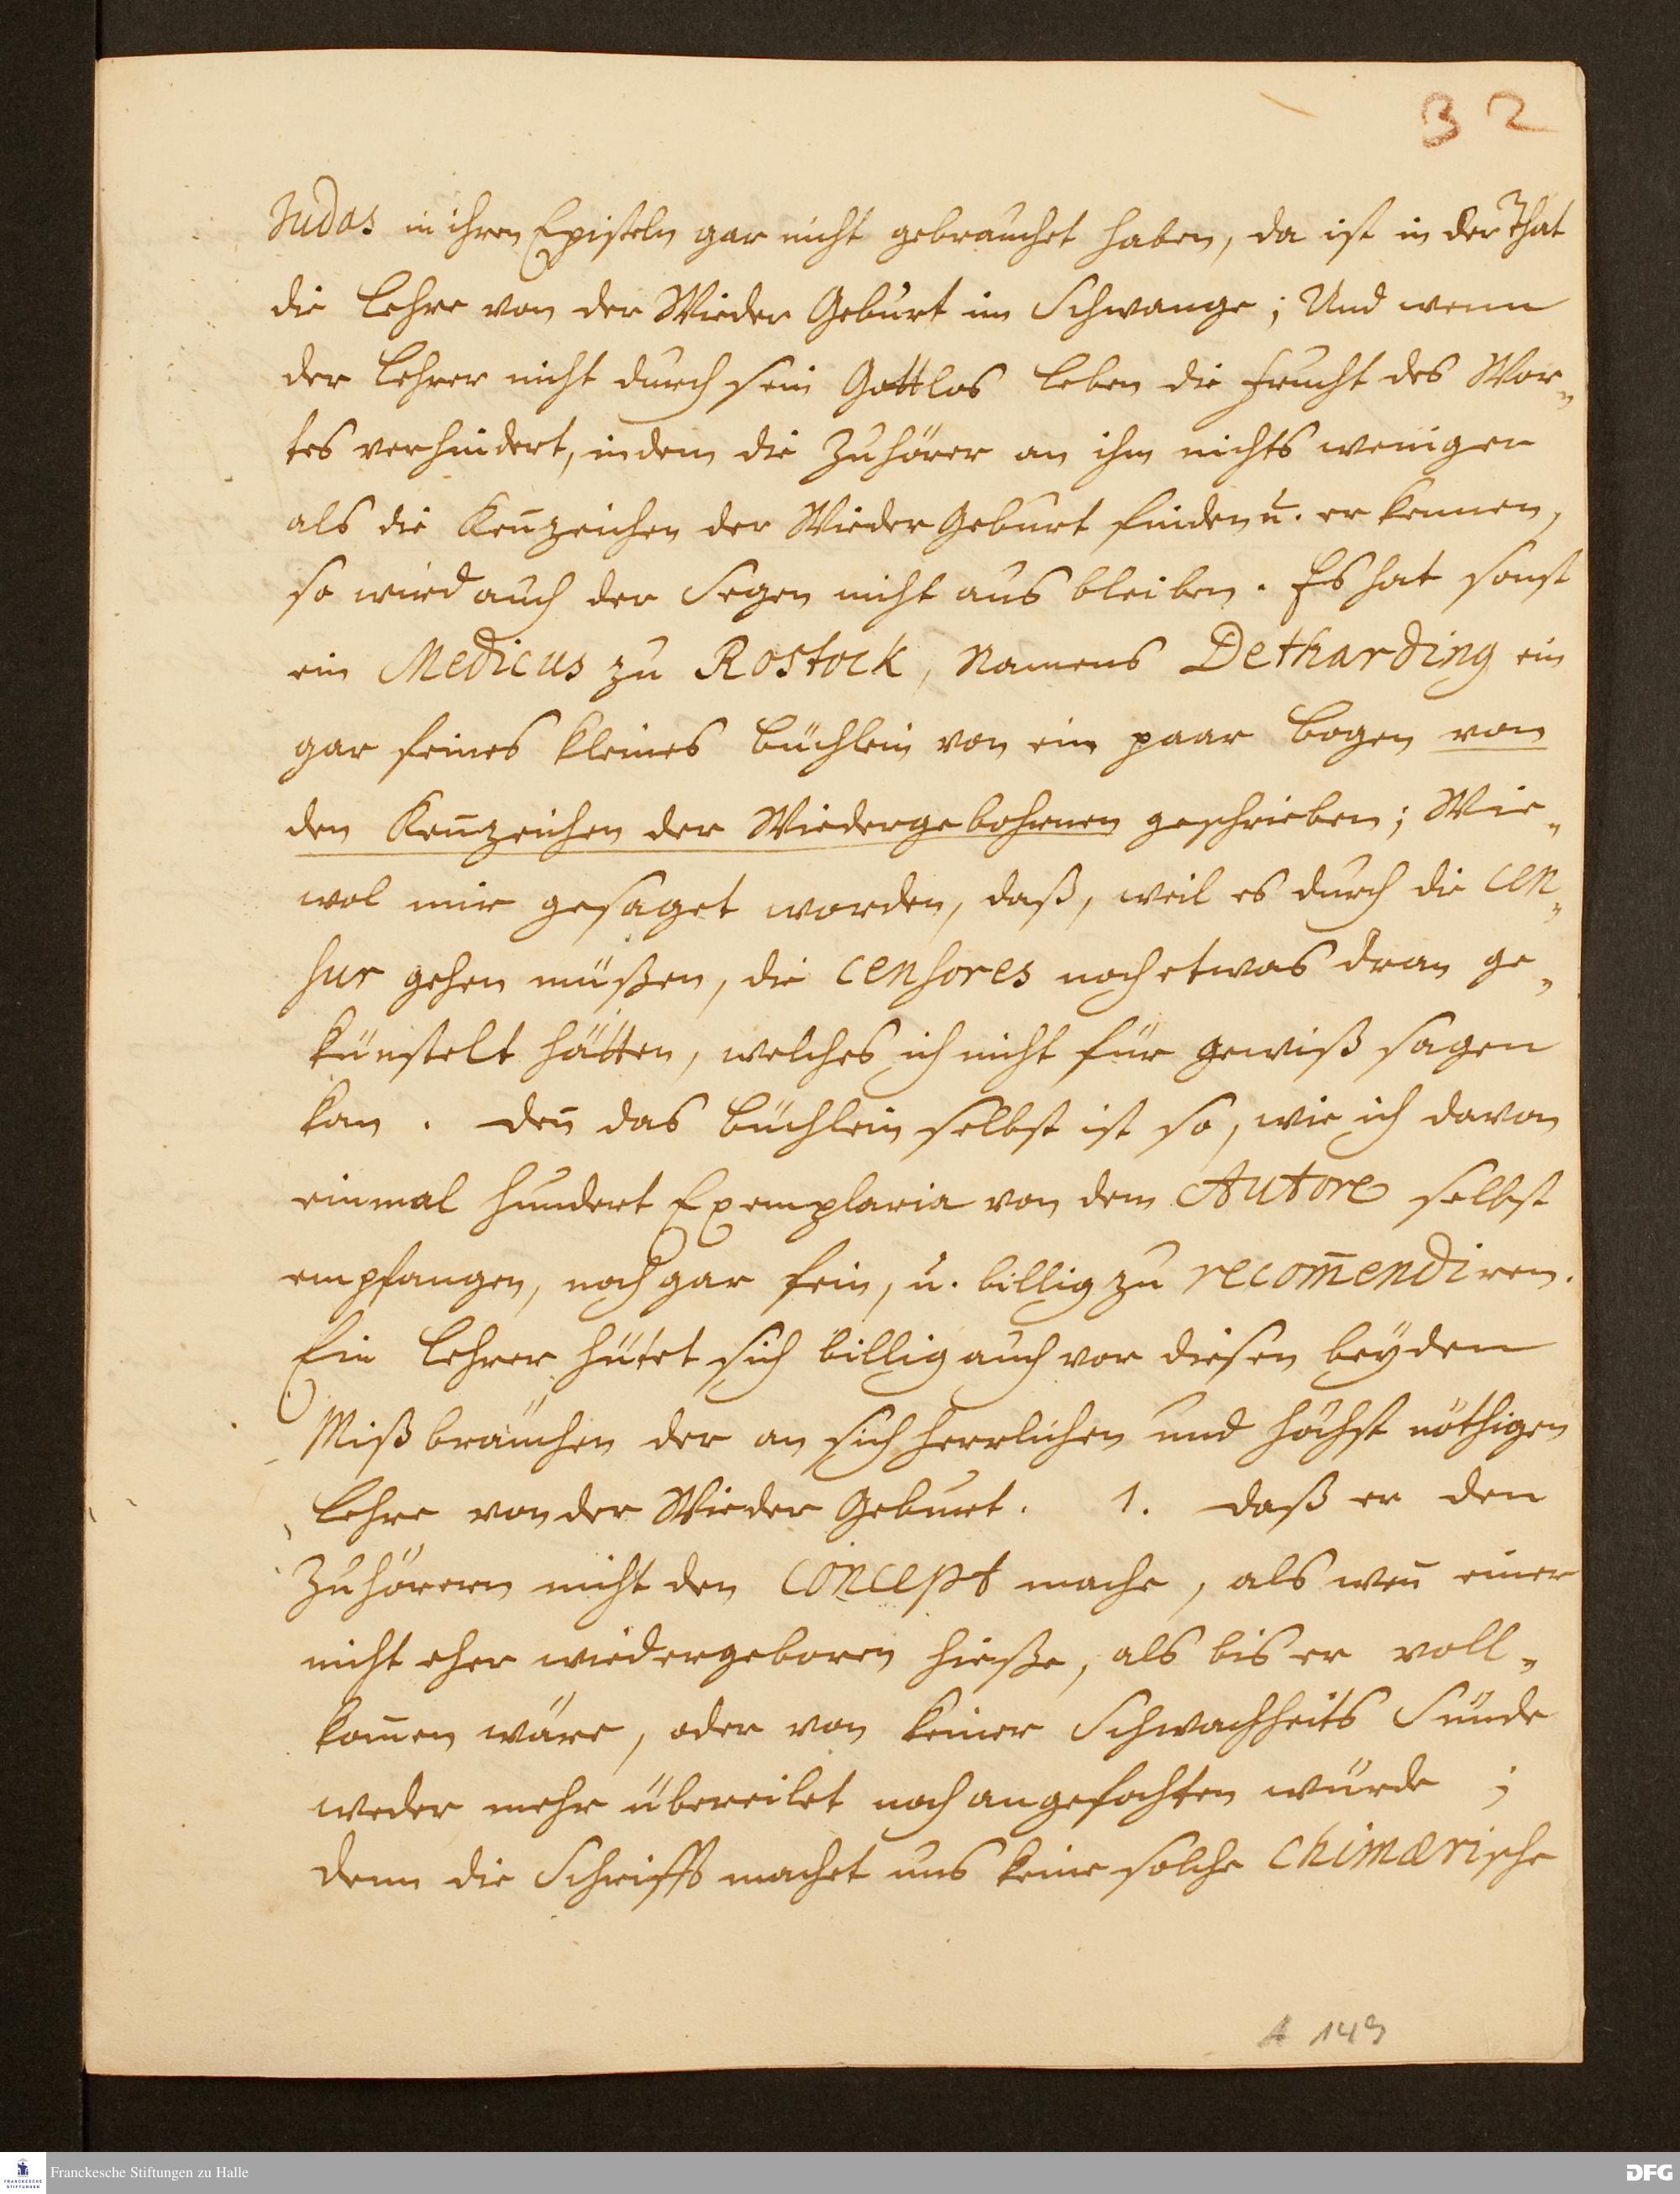 32
Judas in ihren Episteln gar nicht gebrauchet haben, da ist in der That
die Lehre von der Wieder Geburt im Schwange; Und wenn
der Lehrer nicht durch sein Gottlos Leben die Frucht des Wor„
tes verhindert, indem die Zuhörer an ihm nichts weniger
als die Keñzeichen der Wieder Geburt finden u. er kennen,
so wird auch der Segen nicht aus bleiben. Es hat sonst
ein Medicus zu Rostock, Namens Detharding ein
gar feines kleines Büchlein von ein paar Bogen von
den Keñzeichen der Wiedergebohrnen geschrieben; Wie„
wol mir gesaget worden, daß, weil es durch die Cen„
sur gehen müßen, die Censores noch etwas dran ge„
künstelt hätten, welches ich nicht für gewiß sagen
kan. Deñ das Büchlein selbst ist so, wie ich davon
einmal hundert Exemplaria von dem Autore selbst
empfangen, noch gar fein, u. billig zu recom̄endiren.
Ein Lehrer hütet sich billig auch vor diesen beyden
Mißbräuchen der an sich herrlichen und höchst nöthigen
Lehre von der Wieder Geburt. 1. Daß er den
Zuhörern nicht den Concept mache, als weñ einer
nicht eher wiedergeboren hieße, als bis er voll„
kom̄en wäre, oder von keiner Schwachheits Sünde
weder mehr übereilet noch angefochten würde;
denn die Schrifft machet uns keine solche Chimærische
A 149
Franckesche Stiftungen zu Halle
FRANCKESCHE STIFTUNGEN
DFG